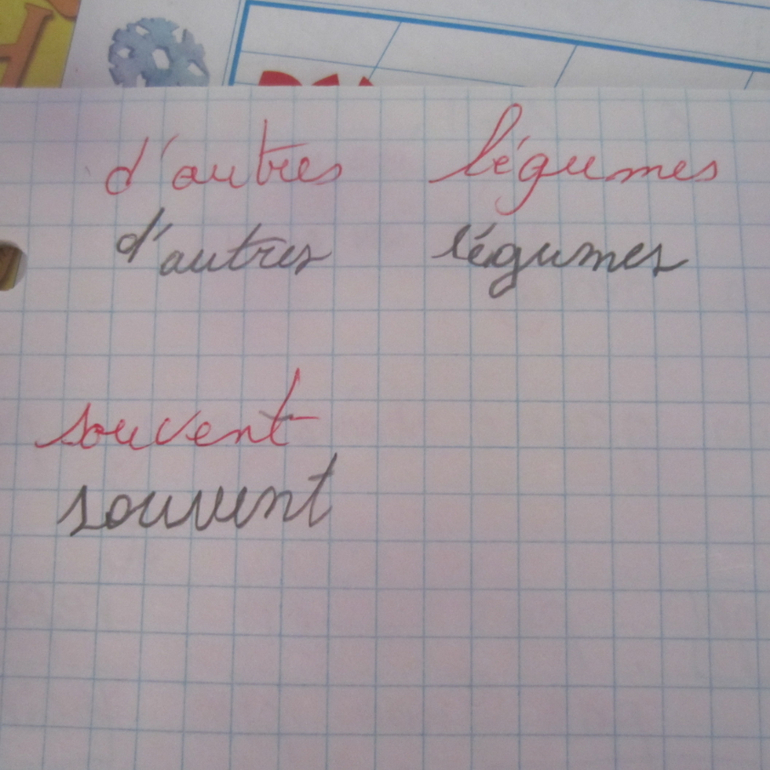 d'autres légumes
d'autres légumes
souvent
souvent